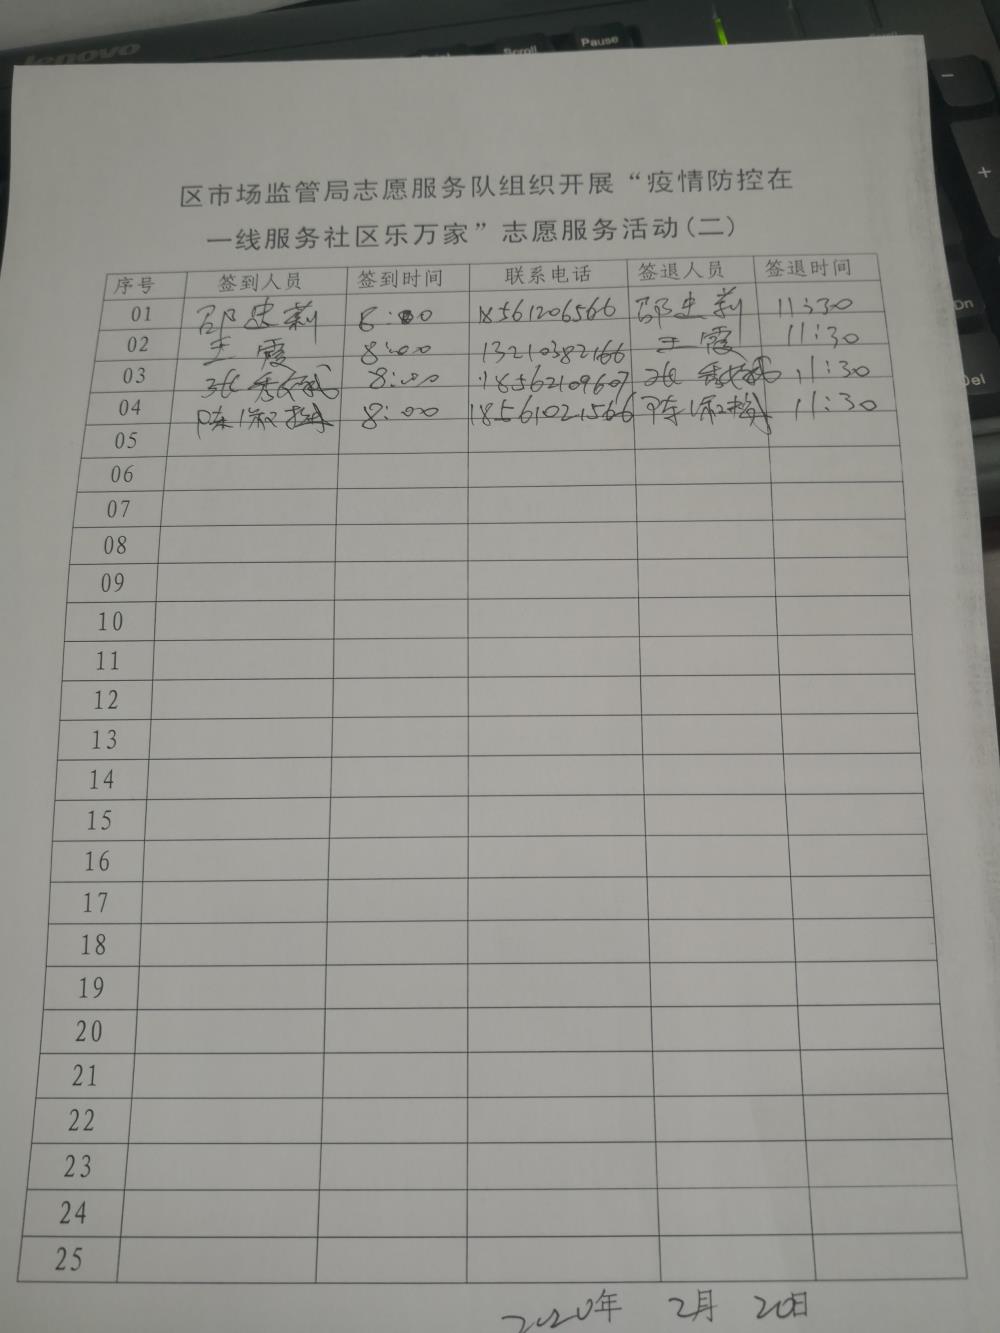 lenovo
Scroll
Pause
区市场监管局志愿服务队组织开展“疫情防控在
一线服务社区乐万家”志愿服务活动(二)
序号 签到人员 签到时间 联系电话 签退人员 签退时间
01 邵忠莉 8:00 18561206566 邵忠莉 11:30
02 王霞 8:00 13210382166 王霞 11:30
03 张 8:00 18562109607 张 11:30
04 陈淑 8:00 18561021566 陈淑 11:30
05
06
07
08
09
10
11
12
13
14
15
16
17
18
19
20
21
22
23
24
25
2020年 2月 20日